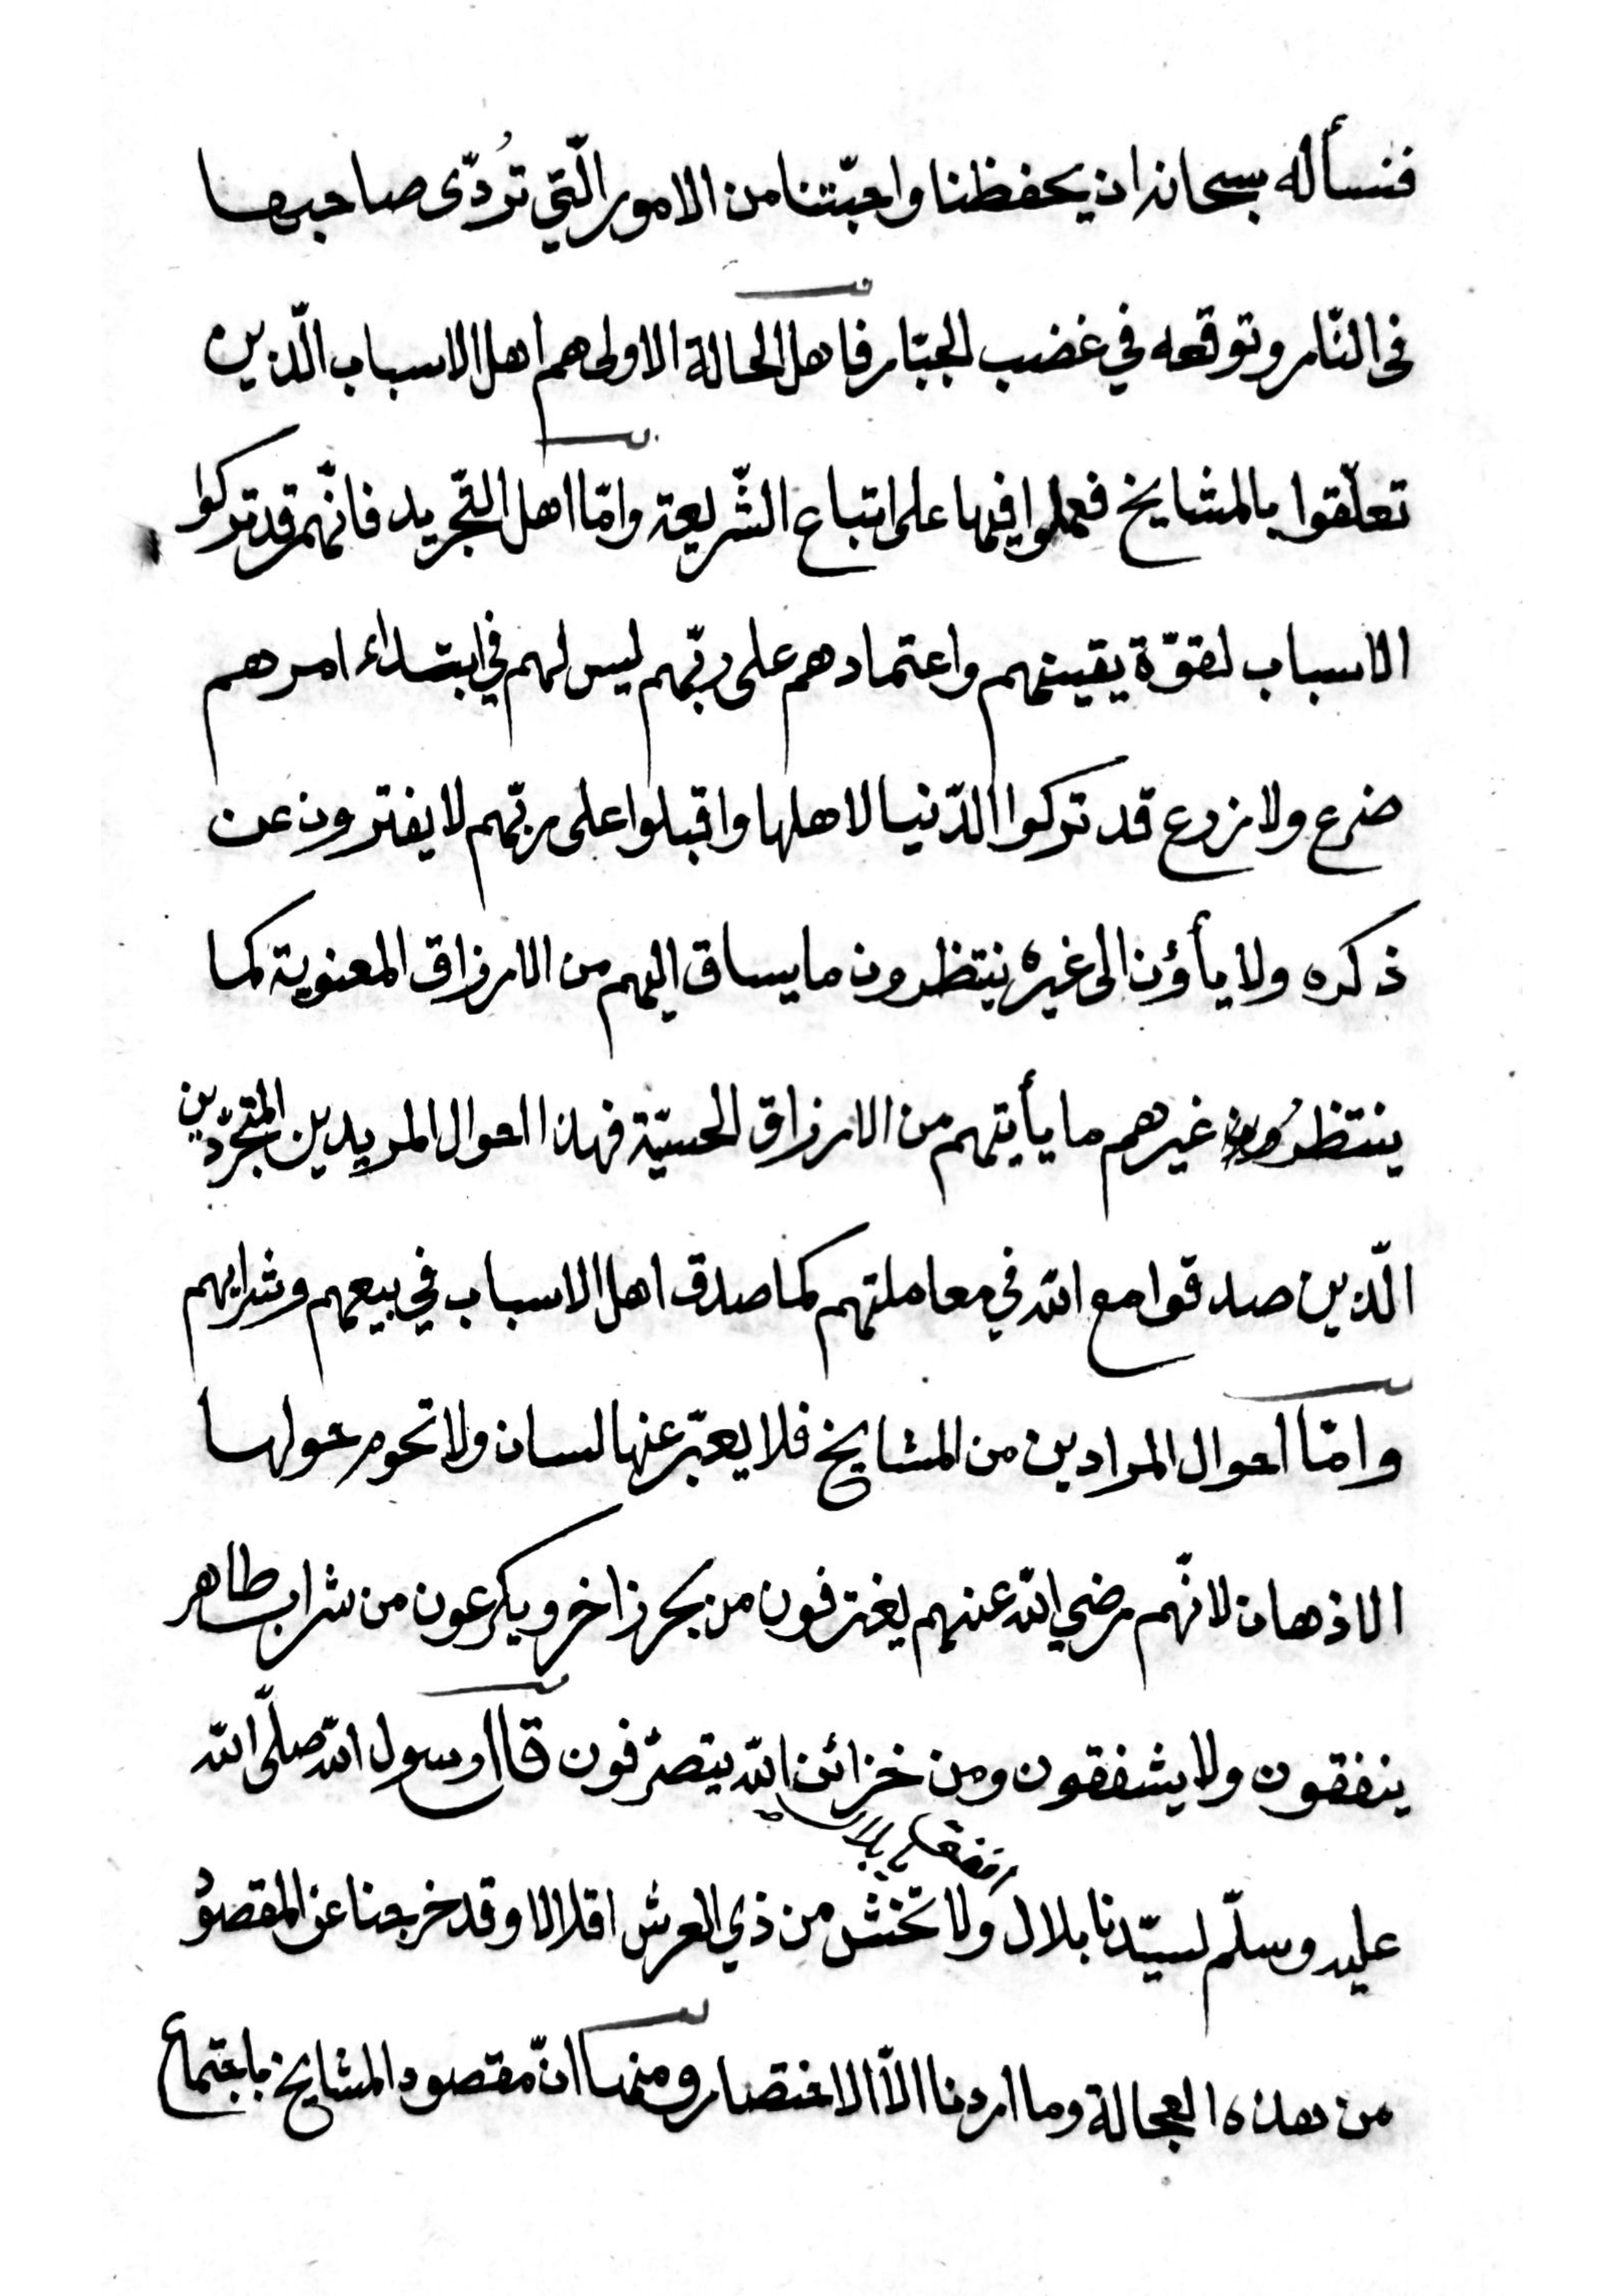 فنسأله سبحانه ان يحفظنا واحبّتنا من الامور الّتي تُردّى صاحبها
في النّار وتوقعه في غضب الجبّار فاهل الحالة الاولى هم اهل الاسباب الّذين
تعلّقوا بالمشايخ فعملوا فيها على اتباع الشّريعة وامّا اهل التّجريد فانّهم قد تركوا
الاسباب لقوّة يقينهم واعتمادهم على ربّهم ليس لهم في ابتداء امرهم
ضرع ولا زرع قد تركوا الدّنيا لاهلها واقبلوا على ربّهم لا يفترون عن
ذكره ولا يأؤن الى غيره ينتظرون ما يساق اليهم من الارزاق المعنوية كما
ينتظرُون غيرهم ما يأيتهم من الارزاق الحسيّة فهذا احوال المريدين المتجرّدين
الّذين صدقوا مع الله في معاملتهم كما صدق اهل الاسباب في بيعهم وشرايهم
وامّا احوال المرادين من المشايخ فلا يعبّر عنها لسان ولا تحوم حولها
الاذهان لانّهم رضي الله عنهم يغترفون من بحر زاخر ويكرعون من شراب طاهر
ينفقون ولا يشفقون ومن خزائن الله يتصرّفون قال رسول الله صلّى الله
انفق يا بلال
عليه وسلّم لسيّدنا بلال ولا تخش من ذي العرش اقلالا وقد خرجنا عن المقصوُد
من هذه العجالة وما اردنا الاّ الاختصار ومنها انّ مقصود المشايخ باجتماع